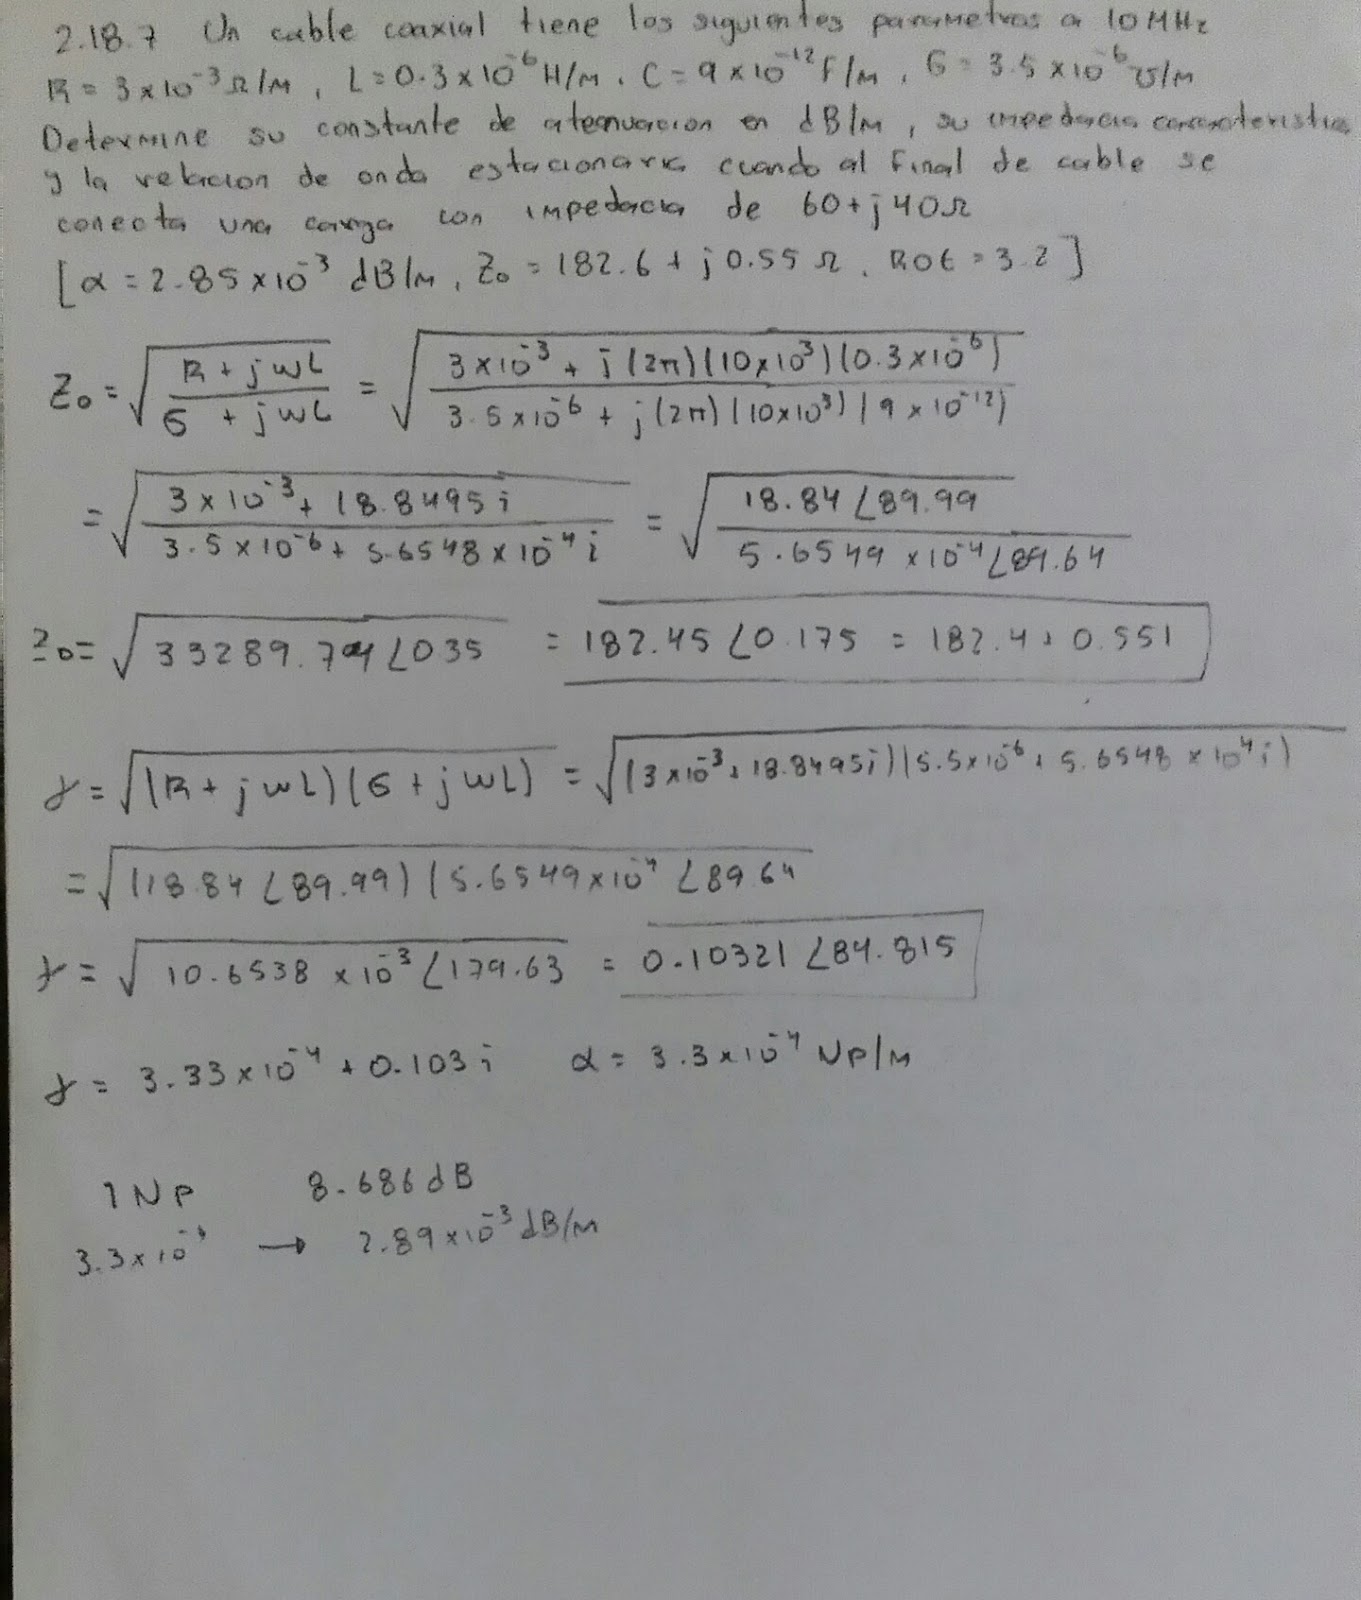 2.18.7 Un cable coaxial tiene los siguientes parametros a 10 MHz
R = 3x10⁻³ Ω/M, L = 0.3x10⁻⁶ H/M, C = 9x10⁻¹² F/M, G = 3.5x10⁻⁶ ℧/M
Determine su constante de atenuacion en dB/M, su impedacia caracteristica
y la relacion de onda estacionaria cuando al final de cable se
conecta una carga con impedacia de 60+j40Ω
[α = 2.85x10⁻³ dB/M, Z₀ = 182.6 + j0.55 Ω, ROE = 3.2]
Z₀ = √((R + jωL)/(G + jωL)) = √((3x10⁻³ + j(2π)(10x10³)(0.3x10⁻⁶))/(3.5x10⁻⁶ + j(2π)(10x10³)(9x10⁻¹²)))
= √((3x10⁻³ + 18.8495i)/(3.5x10⁻⁶ + 5.6548x10⁻⁴i)) = √((18.84∠89.99)/(5.6549x10⁻⁴∠89.64))
Z₀ = √(33289.74∠035) = 182.45∠0.175 = 182.4 + 0.551
γ = √((R + jωL)(G + jωL)) = √((3x10⁻³ + 18.8495i)(5.5x10⁻⁶ + 5.6548x10⁻⁴i)
= √((18.84∠89.99)(5.6549x10⁻⁴∠89.64
γ = √(10.6538x10⁻³∠179.63) = 0.10321∠84.815
γ = 3.33x10⁻⁴ + 0.103i α = 3.3x10⁻⁴ NP/M
1 NP 8.686 dB
3.3x10⁻⁴ → 2.89x10⁻³ dB/M